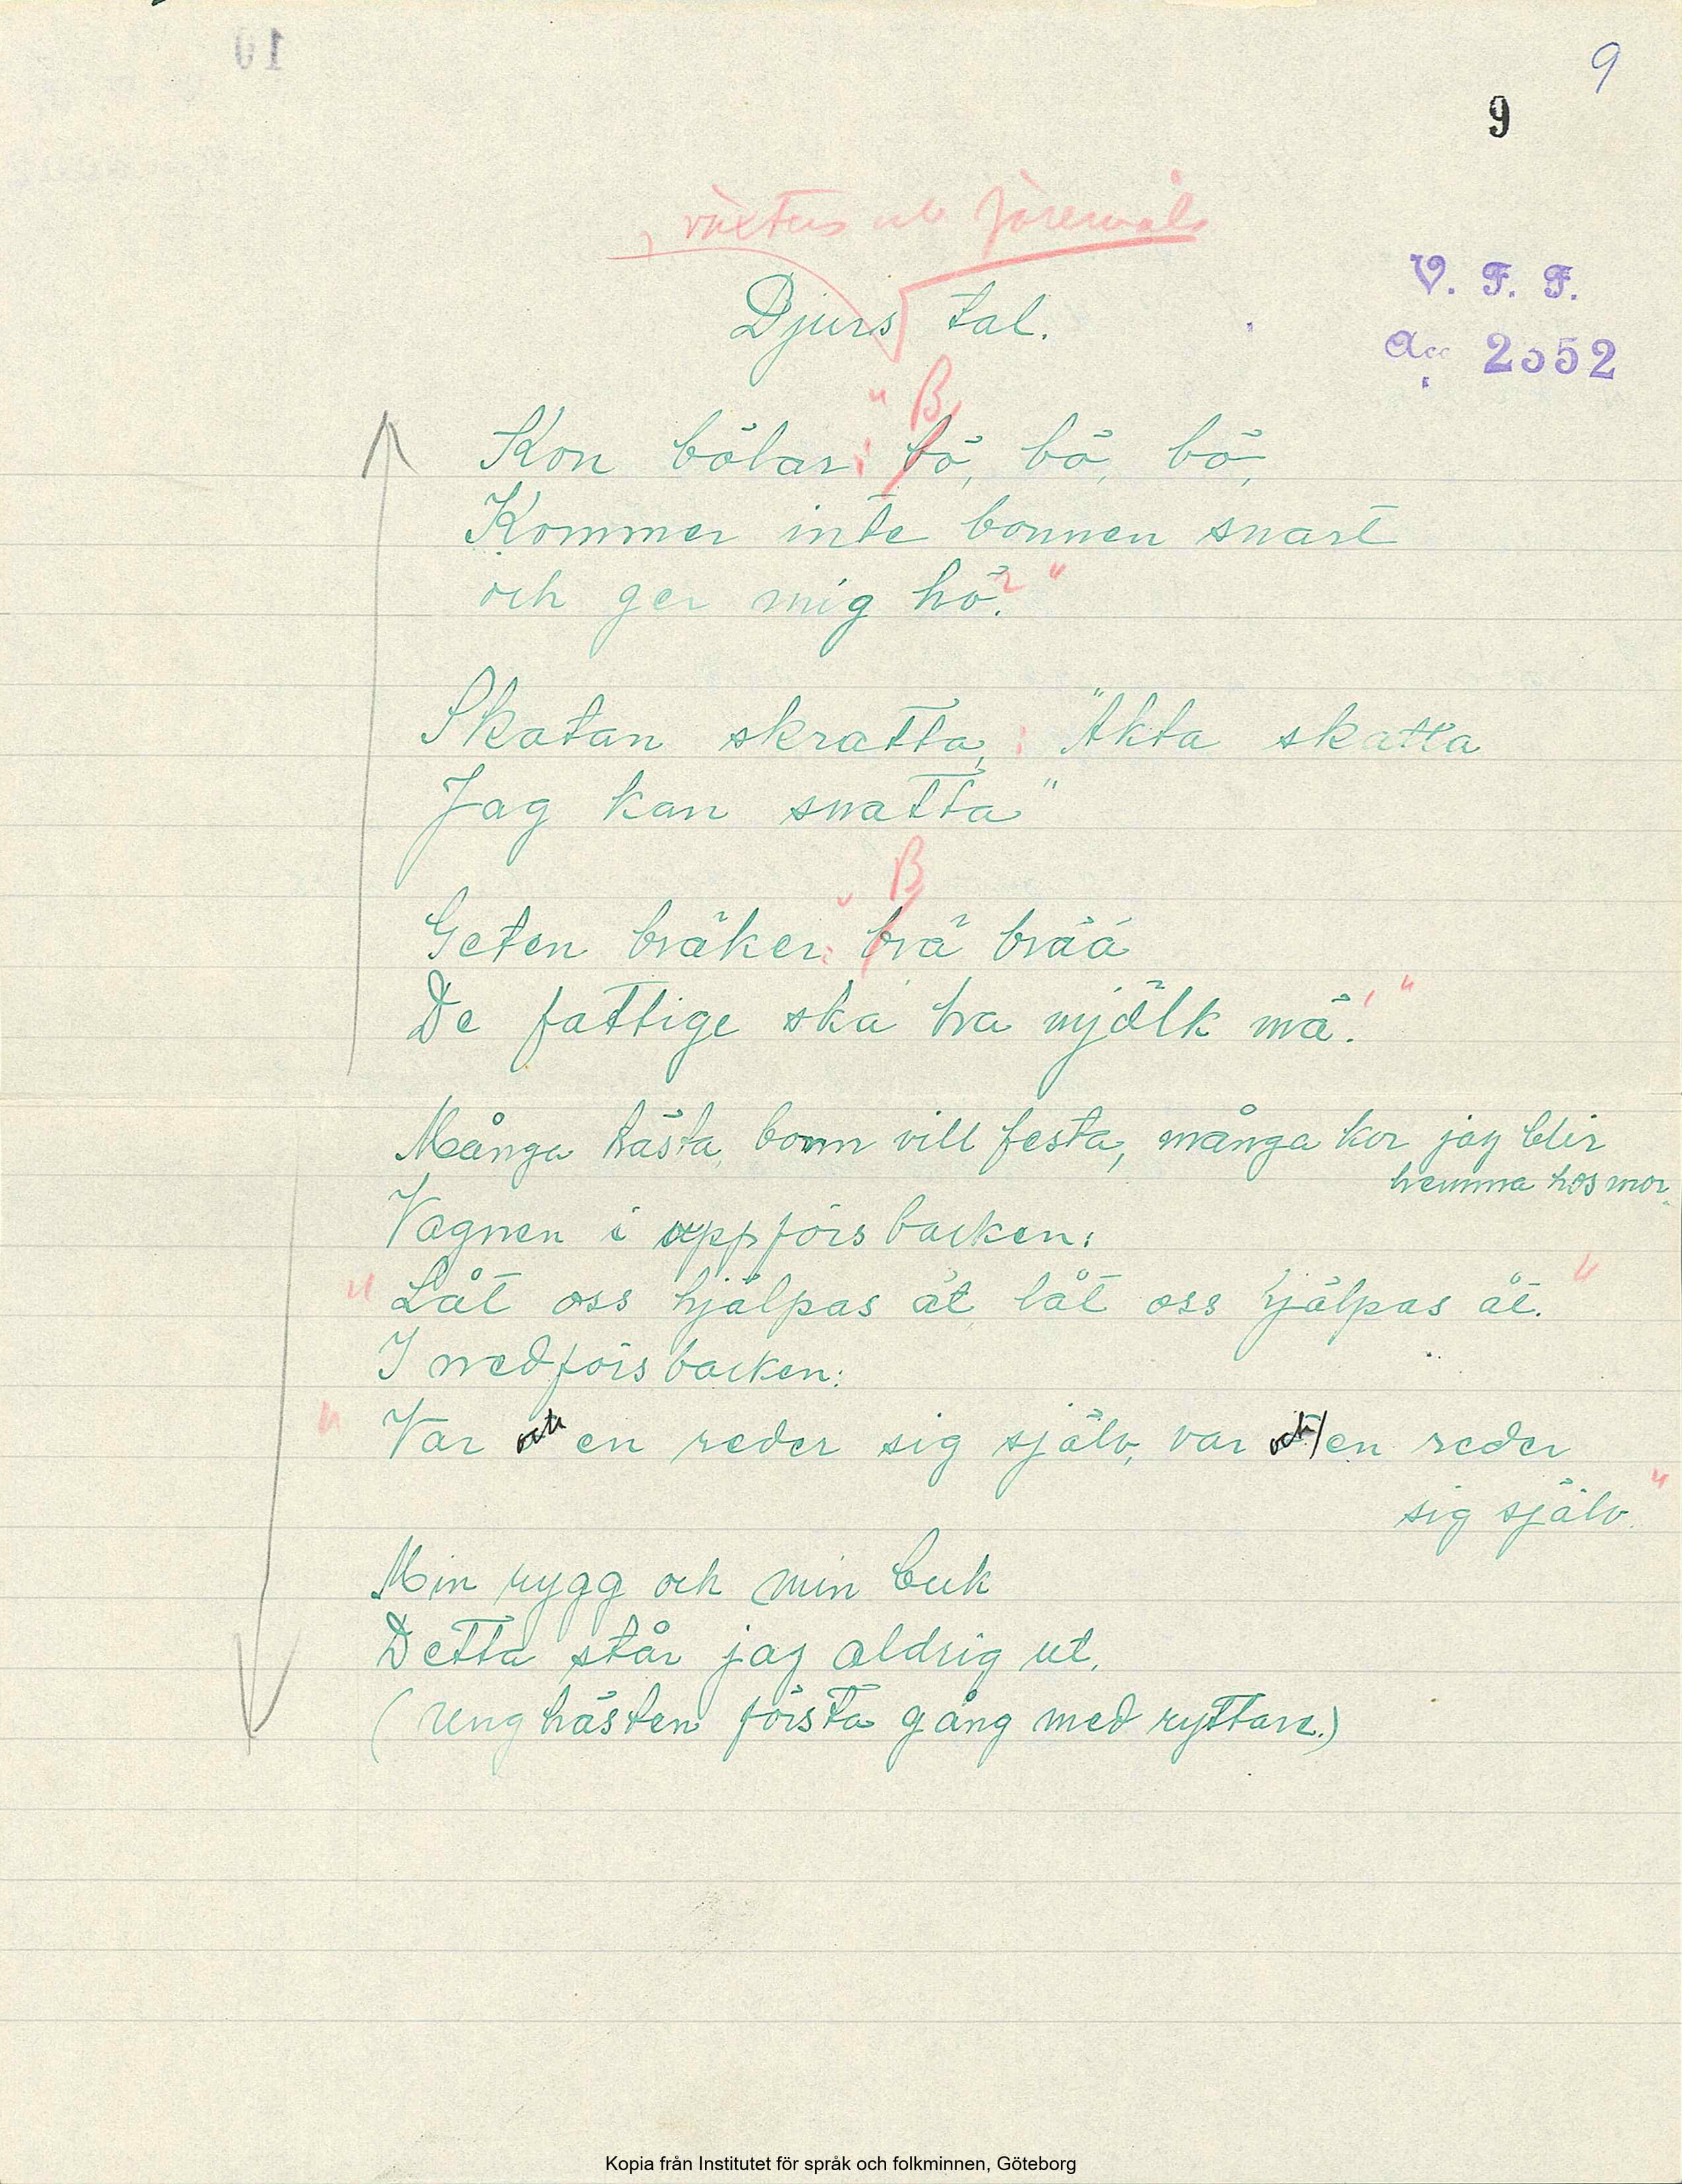 9
9
, växters och föremåls
V. F. F.
Djurs tal.
Acc 2552
Kon bölar: "Bö, bö, bö,
Kommer inte bonnen snart
och ger mig hö?"
Skatan skratta: "Akta skatta
Jag kan snatta"
Geten bräker: "Brä brää
De fattige ska ha mjölk mä."
Många hästa, bonn vill festa, många kor jag blir
hemma hos mor.
Vagnen i uppförsbacken:
"Låt oss hjälpas åt, låt oss hjälpas åt."
I nedförsbacken:
"Var och en reder sig själv, var och en reder
sig själv."
Min rygg och min buk
Detta står jag aldrig ut.
(Unghästen första gång med ryttare.)
Kopia från Institutet för språk och folkminnen, Göteborg